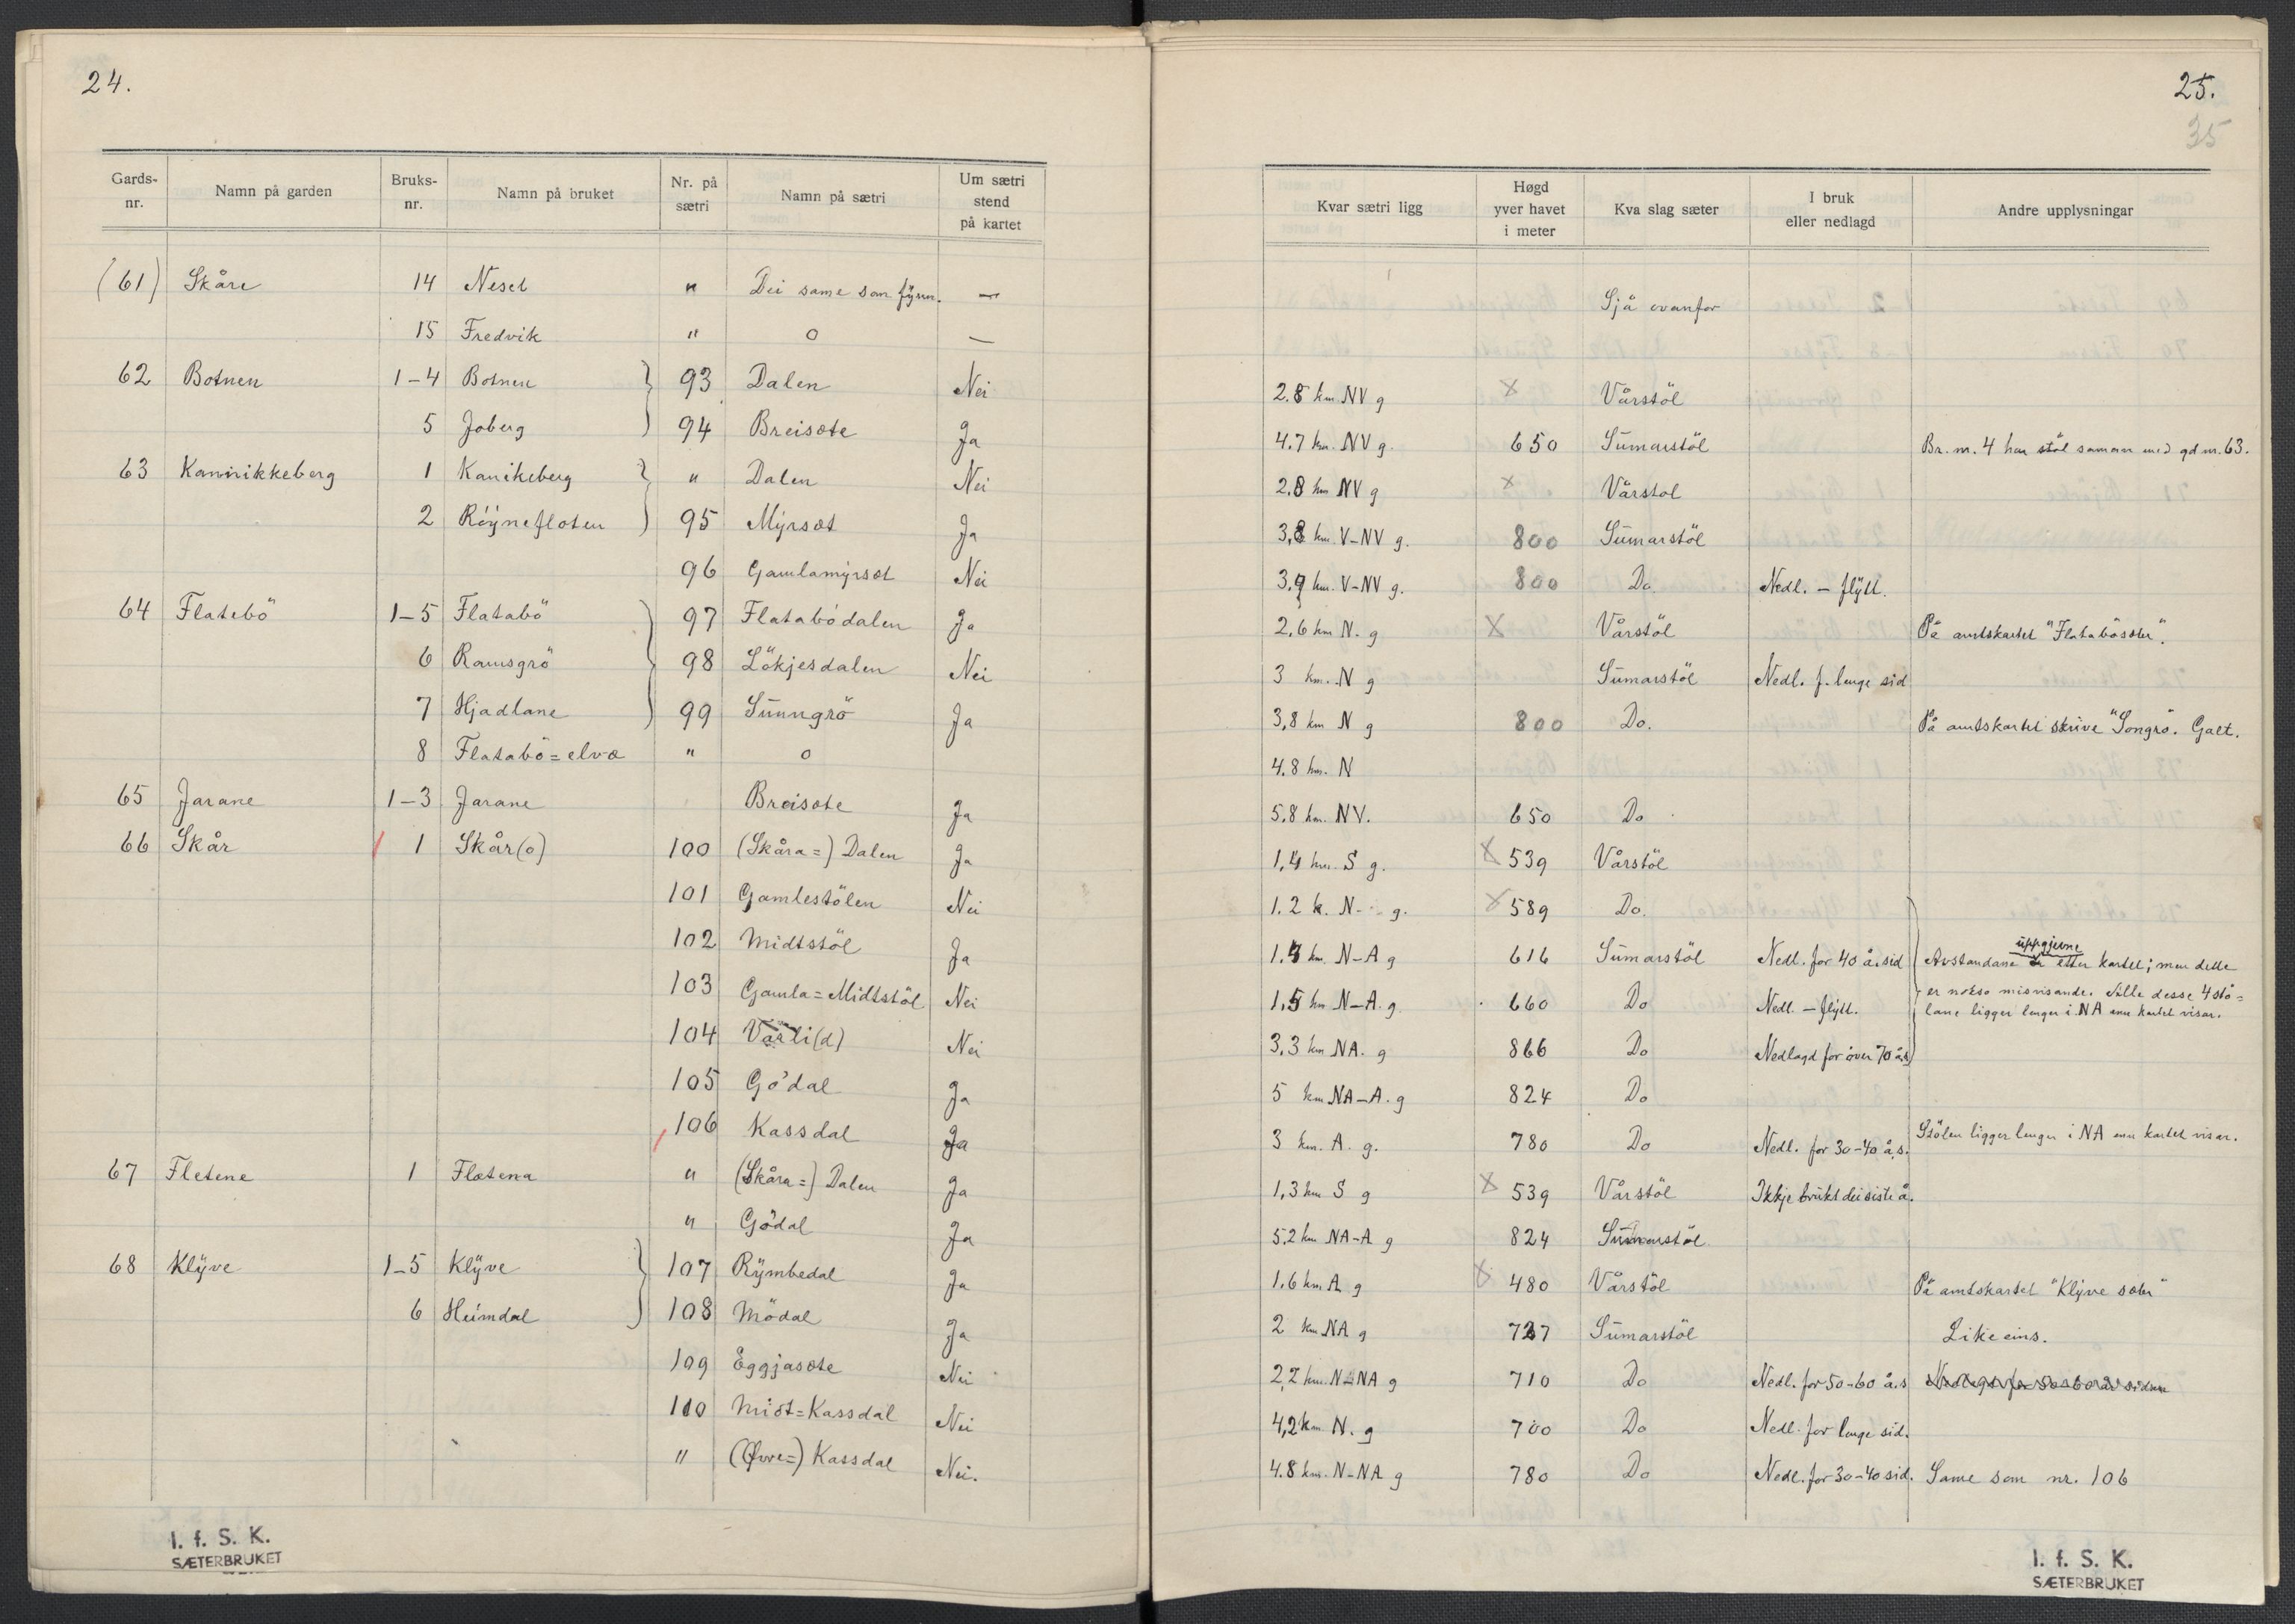 24.
Gards-nr. Namn på garden Bruks-nr. Namn på bruket Nr. på sætri Namn på sætri Um sætri stend på kartet
(61) Skåre 14 Neset " Dei same som fyrr. —
15 Fredvik " o —
62 Botnen 1-4 Botnen } 93 Dalen Nei
5 Joberg ) 94 Breisete Ja
63 Kannikkeberg 1 Kanikeberg } " Dalen Nei
2 Röynefloten ) 95 Myrsæt Ja
96 Gamlamyrsæt Nei
64 Flatebö 1-5 Flatabö 97 Flatabödalen Ja
6 Ramsgrö } 98 Lökjesdalen Nei
7 Hjadlane ) 99 Sunngrö Ja
8 Flatabö=elva " o
65 Jarane 1-3 Jarane Breisete Ja
66 Skår 1 Skår(o) 100 (Skåra=) Dalen Ja
101 Gamlestölen Nei
102 Midtstöl Ja
103 Gamla=Midtstöl Nei
104 Vårli(d) Nei
105 Gödal Ja
106 Kassdal Ja
67 Fletene 1 Flotena " (Skåra=) Dalen Ja
" Gödal Ja
68 Klyve 1-5 Klyve } 107 Rymbedal Ja
6 Heimdal ) 108 Mödal Ja
109 Eggjasete Nei
110 Midt=Kassdal Nei
" (Øvre=) Kassdal Nei.
I. f. S. K.
SÆTERBRUKET
25.
35
Kvar sætri ligg Høgd yver havet i meter Kva slag sæter I bruk eller nedlagd Andre upplysningar
Sjå ovanfor
2.8 km NV g x Vårstöl
4.7 km. NV g. 650 Sumarstöl Br. nr. 4 har stöl saman med gd nr. 63.
2.8 km NV g x Vårstöl
3,8 km. V-NV g. 800 Sumarstöl
3,9 km. V-NV g. 800 Do. Nedl. - flytt.
2,6 km N. g x Vårstöl På amtskartet "Flatabösæter".
3 km. N g Sumarstöl Nedl. f. lenge sid
3,8 km N g 800 Do. På amtskartet skrive "Songrö". Galt.
4.8 km. N
5.8 km. NV. 650 Do
1,4 km. S g. x 539 Vårstöl
1.2 k. N- g. x 589 Do.
1.4 km. N-A g 616 Sumarstöl Nedl. for 40 å. sid Avstandane uppgjevne etter kartet; men dette
1,5 km N-A. g. 660 Do Nedl. - flytt. er nokso misvisande. Alle desse 4 stö=
lane ligger lenger i NA enn kartet visar.
3.3 km NA. g 866 Do Nedlagd for över 70 å.s
5 km NA-A. g 824 Do
3 km. A. g. 780 Do Nedl. for 30-40 å.s. Stölen ligger lenger i NA enn kartet visar.
1,3 km S g x 539 Vårstöl Ikkje brukt dei siste å.
5.2 km NA-A g 824 Sumarstöl
1.6 km A g x 480 Vårstöl På amtskartet "Klyve sæter"
2 km NA g 727 Sumarstöl Like eins.
2,2 km. N-NA g 710 Do Nedl. for 50-60 å.s Nedlagd for 50-60 år sidan
4,2 km N. g 700 Do Nedl. for lenge sid.
4.8 km. N-NA g 780 Do Nedl. for 30-40 sid. Same som nr. 106
I. f. S. K.
SÆTERBRUKET